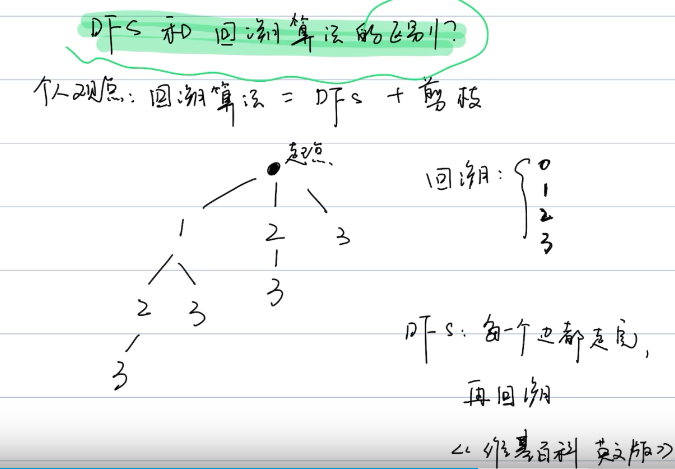 DFS 和 回溯算法的区别?
个人观点: 回溯算法 = DFS + 剪枝
起点
1 2 3
2 3 3
3
回溯: { 0
1
2
3
DFS: 每一个边都走完,
再回溯
<<维基百科 英文版>>